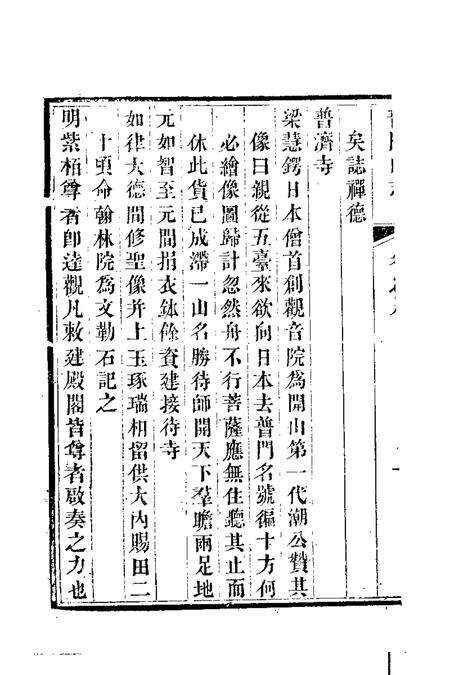 矣誌禪德
普濟寺
梁慧鍔日本僧首創觀音院為開山第一代潮公贊其
像曰親從五臺來欲向日本去普門名號徧十方何
必繪像圖歸計忽然舟不行菩薩應無住聽其止而
休此貨已成滯一山名勝待師開天下羣瞻兩足地
元如智至元間捐衣鉢餘資建接待寺
如律大德間修聖像并上玉琢瑞相留供大內賜田二
十頃命翰林院為文勒石記之
明紫栢尊者卽達觀凡敕建殿閣皆尊者啟奏之力也